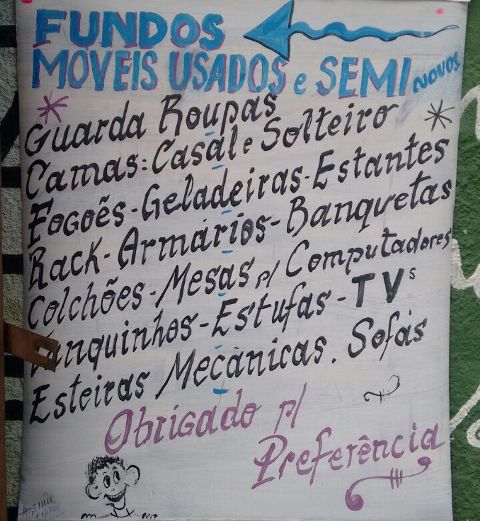 FUNDOS
MOVEIS USADOS e SEMI NOVOS
Guarda Roupas
Camas: Casal e Solteiro
Fogoēs - Geladeiras - Estantes
Rack - Armários - Banquetas
Colchões - Mesas p/ Computadores
anquinhos - Estufas - TVs
Esteiras Mecànicas. Sofás
Obrigado p/
Preferência